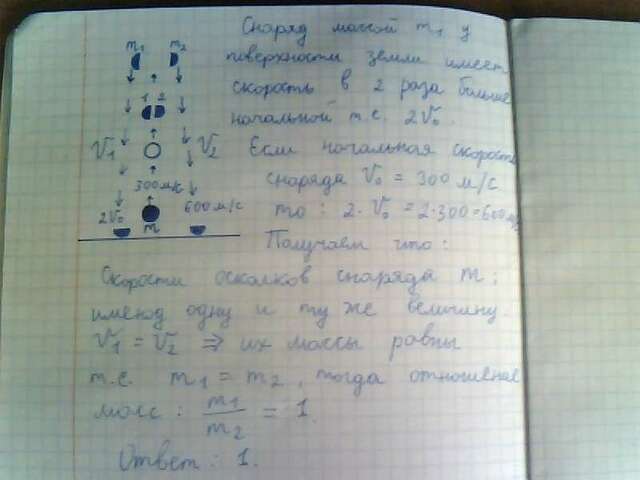 Снаряд массой m₁ у
m₁ m₂
поверхности земли имеет
скорость в 2 раза больше
1 2
начальной т.е. 2V₀.
V₁ V₂
Если начальная скорость
снаряда V₀ = 300 м/с
300 м/с
то: 2·V₀ = 2·300 = 600 м/с
2V₀ m 600 м/с
Получаем что:
Скорости осколков снаряда m:
имеют одну и ту же величину.
V₁ = V₂ ⇒ их массы равны
т.е. m₁ = m₂, тогда отношение
масс: m₁/m₂ = 1.
Ответ: 1.